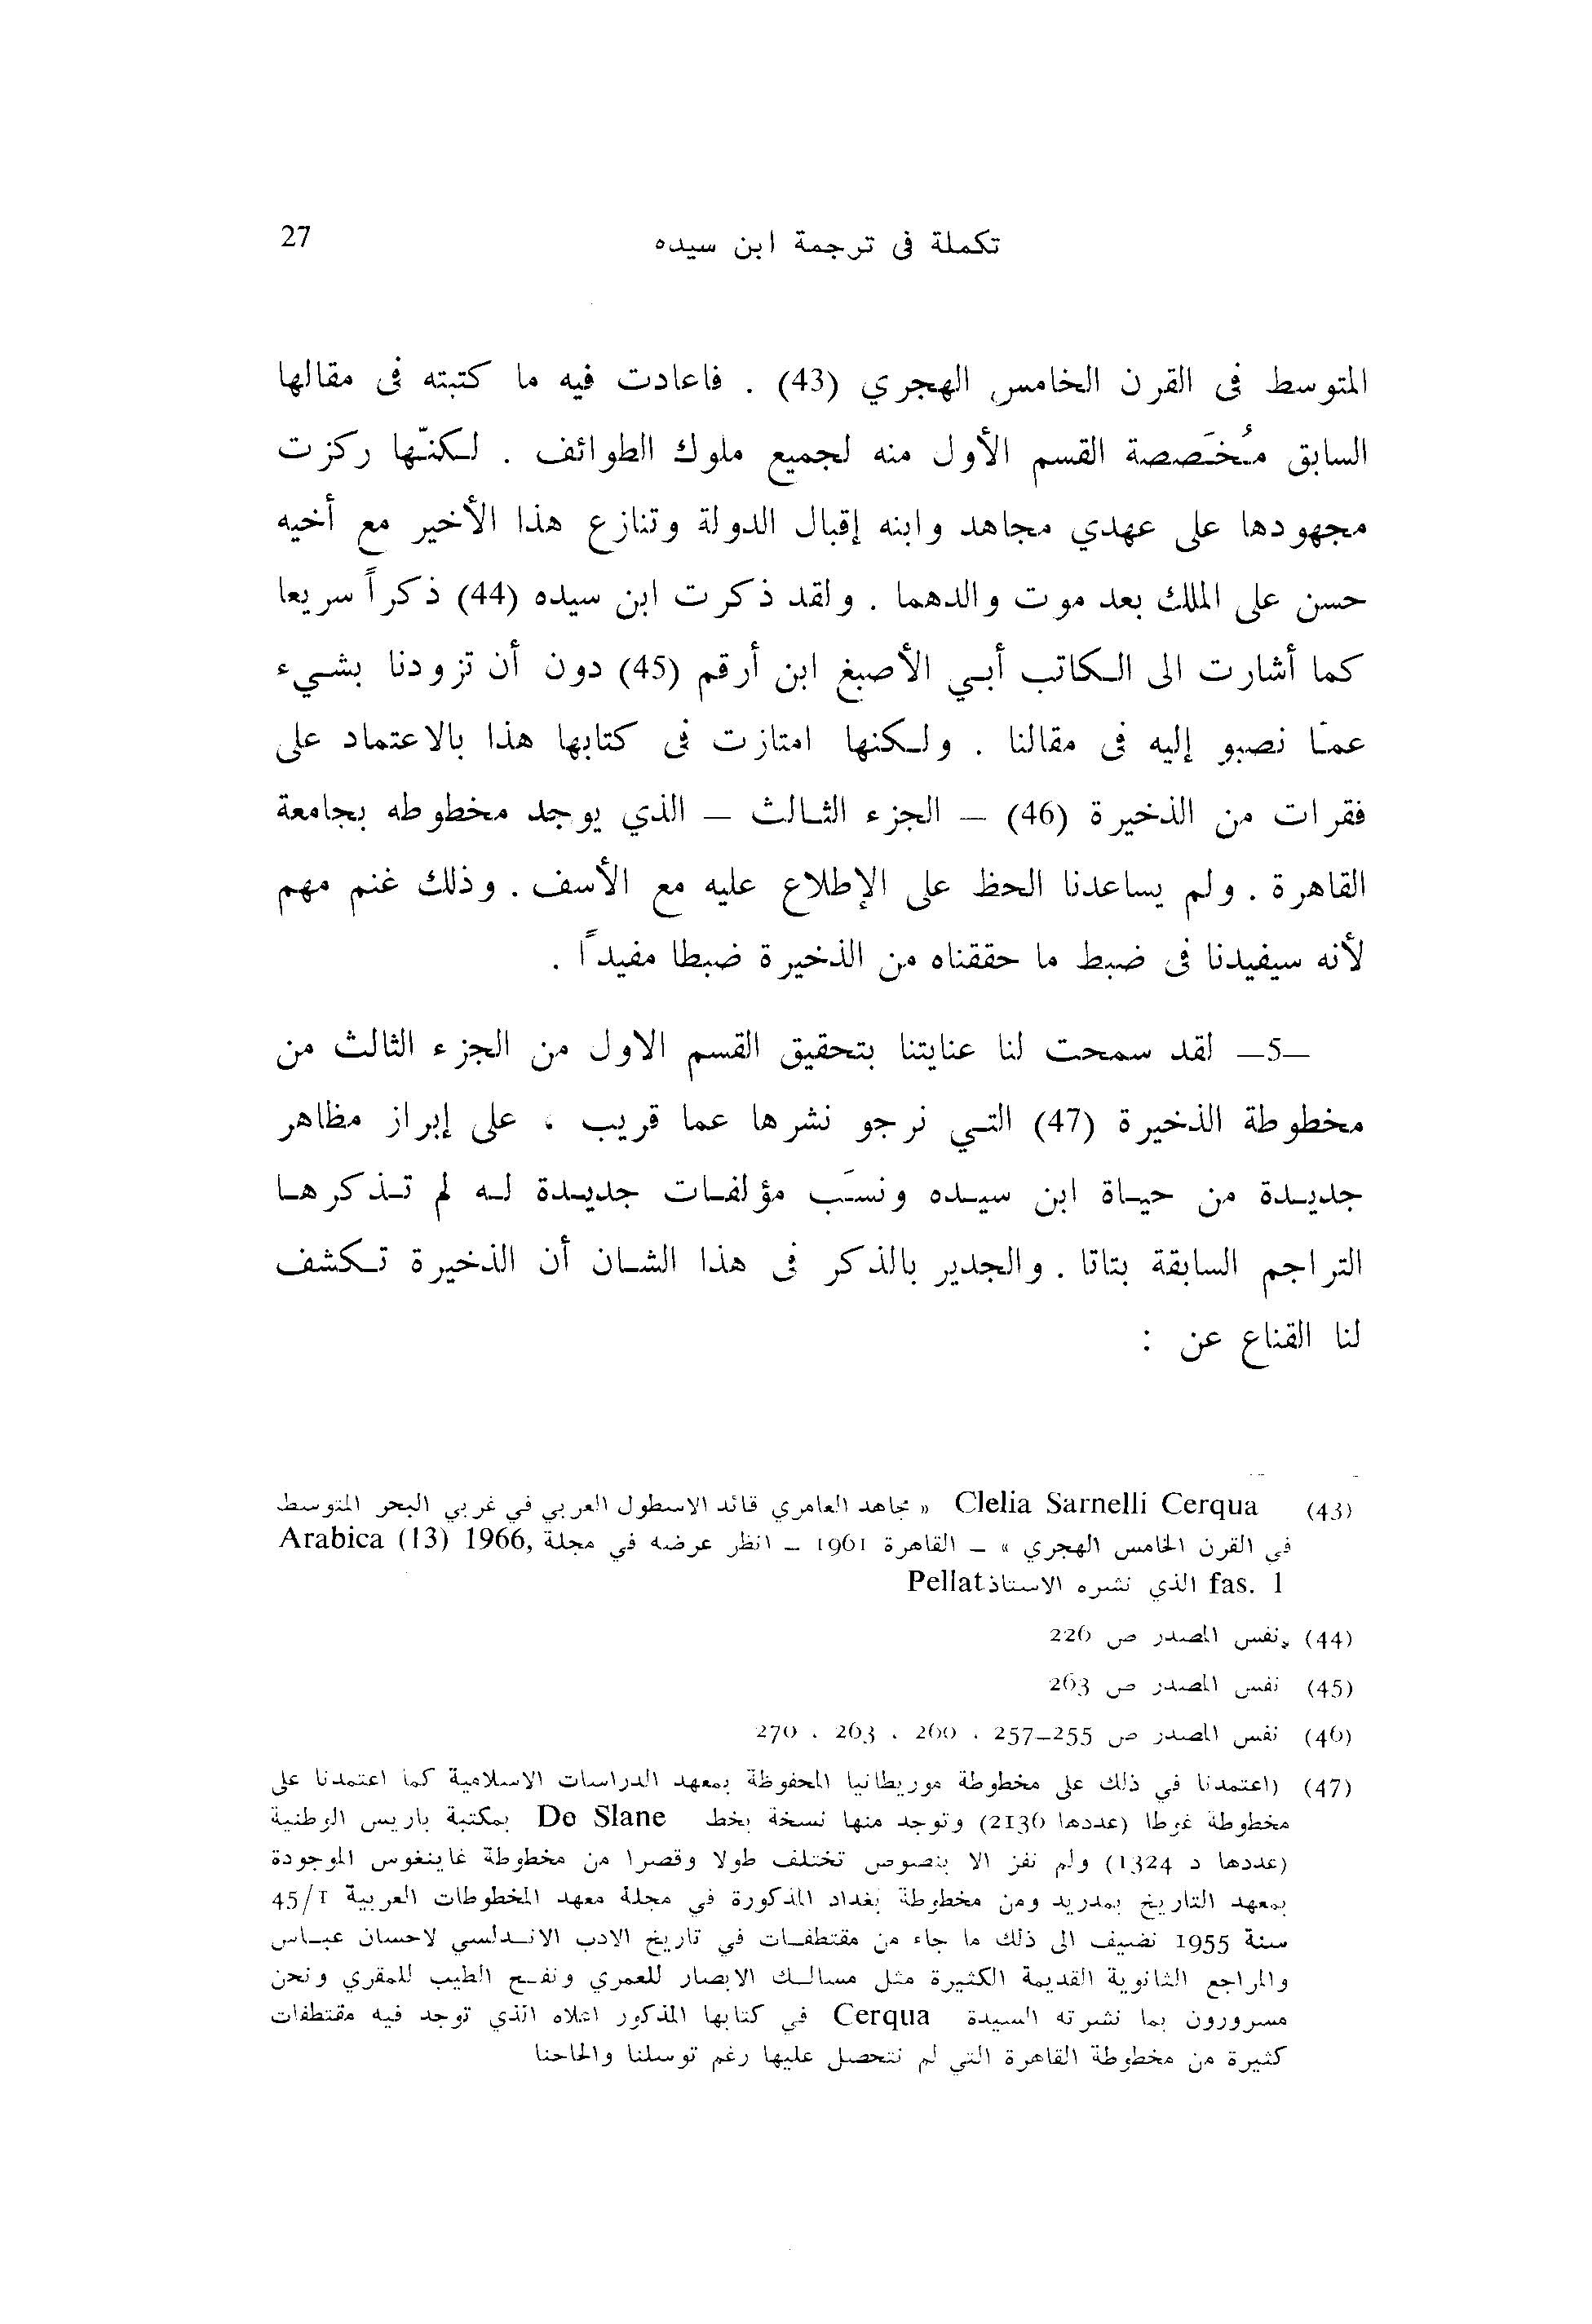 تكملة في ترجمة ابن سيده
27
المتوسط في القرن الخامس الهجري (43) . فاعادت فيه ما كتبته في مقالها
السابق مُخَصصة القسم الأول منه لجميع ملوك الطوائف . لكنّها ركزت
مجهودها على عهدي مجاهد وابنه إقبال الدولة وتنازع هذا الأخير مع أخيه
حسن على الملك بعد موت والدهما . ولقد ذكرت ابن سيده (44) ذكراً سريعا
كما أشارت الى الكاتب أبي الأصبغ ابن أرقم (45) دون أن تزودنا بشيء
عمّا نصبو إليه في مقالنا . ولكنها امتازت في كتابها هذا بالاعتماد على
فقرات من الذخيرة (46) – الجزء الثالث – الذي يوجد مخطوطه بجامعة
القاهرة . ولم يساعدنا الحظ على الإطلاع عليه مع الأسف . وذلك غنم مهم
لأنه سيفيدنا في ضبط ما حققناه من الذخيرة ضبطا مفيداً .
–5– لقد سمحت لنا عنايتنا بتحقيق القسم الاول من الجزء الثالث من
مخطوطة الذخيرة (47) التي نرجو نشرها عما قريب ، على إبراز مظاهر
جديدة من حياة ابن سيده ونسَب مؤلفات جديدة له لم تذكرها
التراجم السابقة بتاتا . والجدير بالذكر في هذا الشان أن الذخيرة تكشف
لنا القناع عن :
(43) Clelia Sarnelli Cerqua « مجاهد العامري قائد الاسطول العربي في غربي البحر المتوسط
في القرن الخامس الهجري » – القاهرة 1961 – انظر عرضه في مجلة Arabica (13) 1966,
fas. 1 الذي نشره الاستاذ Pellat
(44) نفس المصدر ص 226
(45) نفس المصدر ص 263
(46) نفس المصدر ص 255–257 ، 260 ، 263 ، 270
(47) (اعتمدنا في ذلك على مخطوطة موريطانيا المحفوظة بمعهد الدراسات الاسلامية كما اعتمدنا على
مخطوطة غوطا (عددها 2136) وتوجد منها نسخة بخط De Slane بمكتبة باريس الوطنية
(عددها د 1324) ولم نفز الا بنصوص تختلف طولا وقصرا من مخطوطة غاينغوس الموجودة
بمعهد التاريخ بمدريد ومن مخطوطة بغداد المذكورة في مجلة معهد المخطوطات العربية 45/1
سنة 1955 نضيف الى ذلك ما جاء من مقتطفات في تاريخ الادب الاندلسي لاحسان عباس
والمراجع الثانوية القديمة الكثيرة مثل مسالك الابصار للعمري ونفح الطيب للمقري ونحن
مسرورون بما نشرته السيدة Cerqua في كتابها المذكور اعلاه الذي توجد فيه مقتطفات
كثيرة من مخطوطة القاهرة التي لم نتحصل عليها رغم توسلنا والحاحنا